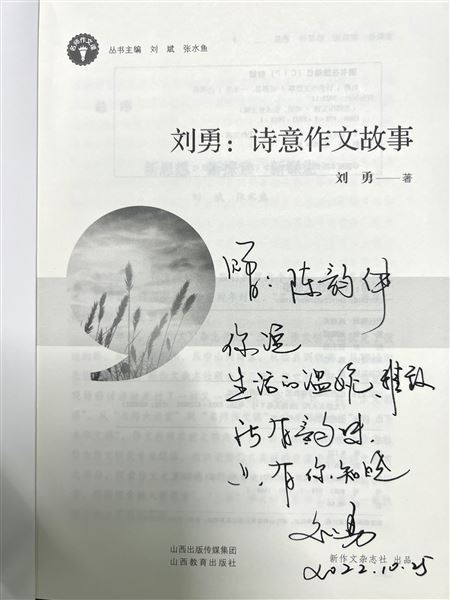 名师作文课
丛书主编 刘 斌 张水鱼
刘勇：诗意作文故事
刘 勇——著
陈韵伊
你 
生活的温婉、雅致
所有韵味，
只有你知晓
刘勇
山西出版传媒集团
山西教育出版社
新作文杂志社 出品
2022.10.25